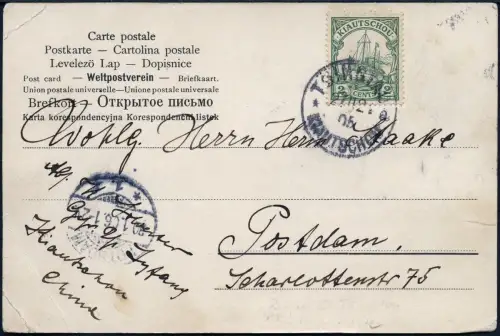 Carte postale
Postkarte — Cartolina postale
Levelező Lap — Dopisnice
Post card — Weltpostverein — Briefkaart.
Union postale universelle—Unione postale universale
Brefkort Открытое письмо
Karta korespondencyjna Korespondenčni listek
KIAUTSCHOU
2 CENTS 2
TSINGTAU
05
KIAUTSCHOU
Wohlg. Herrn Herm. Haake
Postdam.
Scharlottenstr 75
Kiautschou
China